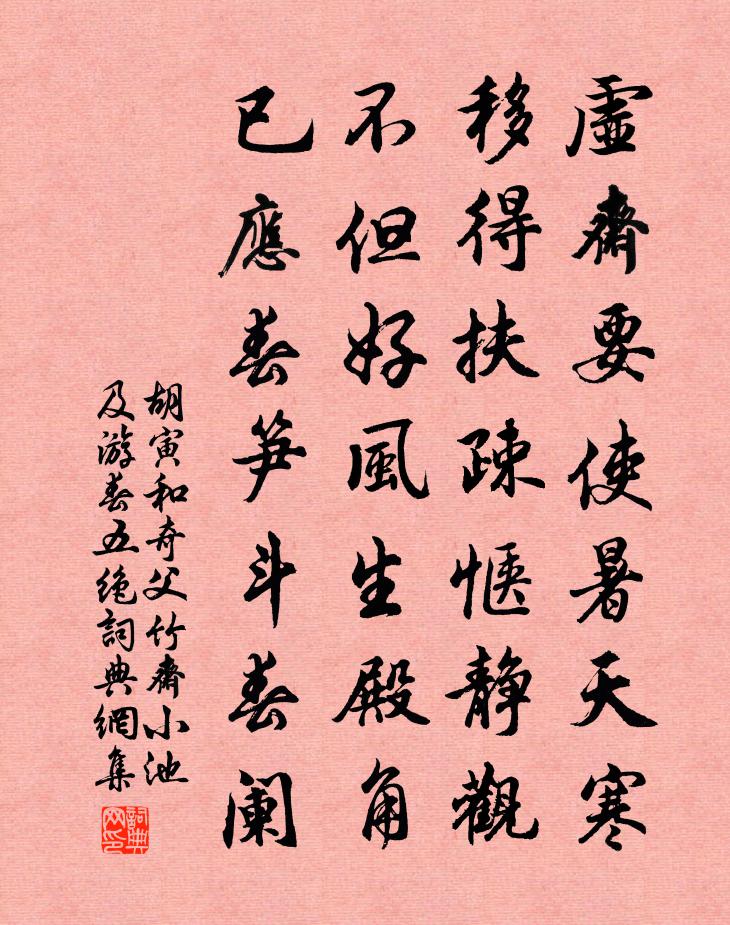 虛齋要使暑天寒
移得扶疎愜静觀
不但好風生殿角
已應春笋斗春闌
胡寅和奇父竹齋小池
及游春五絶詞典網集
詞典网印